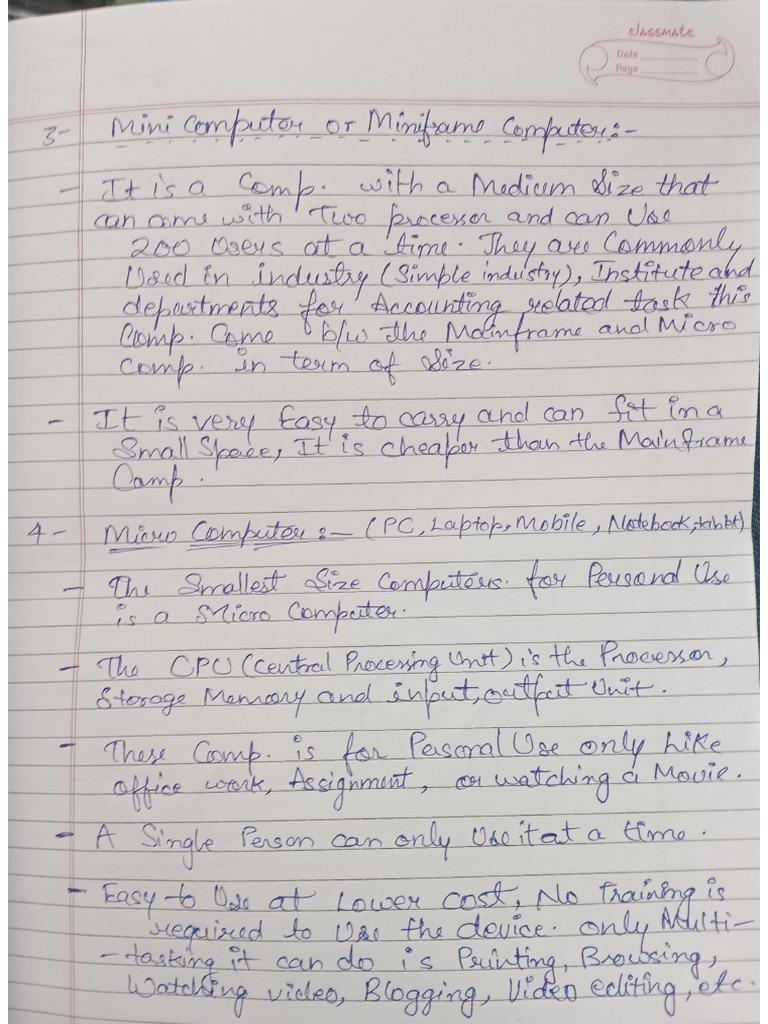 classmate
Date
Page
3- Mini Computer or Miniframe Computer:-
- It is a Comp. with a Medium Size that
can come with Two processer and can Use
200 Users at a time. They are Commonly
Used in industry (Simple industry), Institute and
departments for Accounting related task this
Comp. Come b/w the Mainframe and Micro
Comp. in term of Size.
- It is very Easy to carry and can fit in a
Small Space, It is cheaper than the Mainframe
Comp.
4- Micro Computer:- (PC, Laptop, Mobile, Notebook,
- The Smallest Size Computers. for Personal Use
is a Micro Computer.
- The CPU (Central Processing Unit) is the Processor,
Storage Memory and input, output Unit.
- These Comp. is for Personal Use only Like
office work, Assignment, or watching a Movie.
- A Single Person can only Use it at a time.
- Easy to Use at Lower Cost, No Training is
required to Use the device. only Multi-
-tasking it can do is Printing, Browsing,
Watching video, Blogging, Video editing, etc.